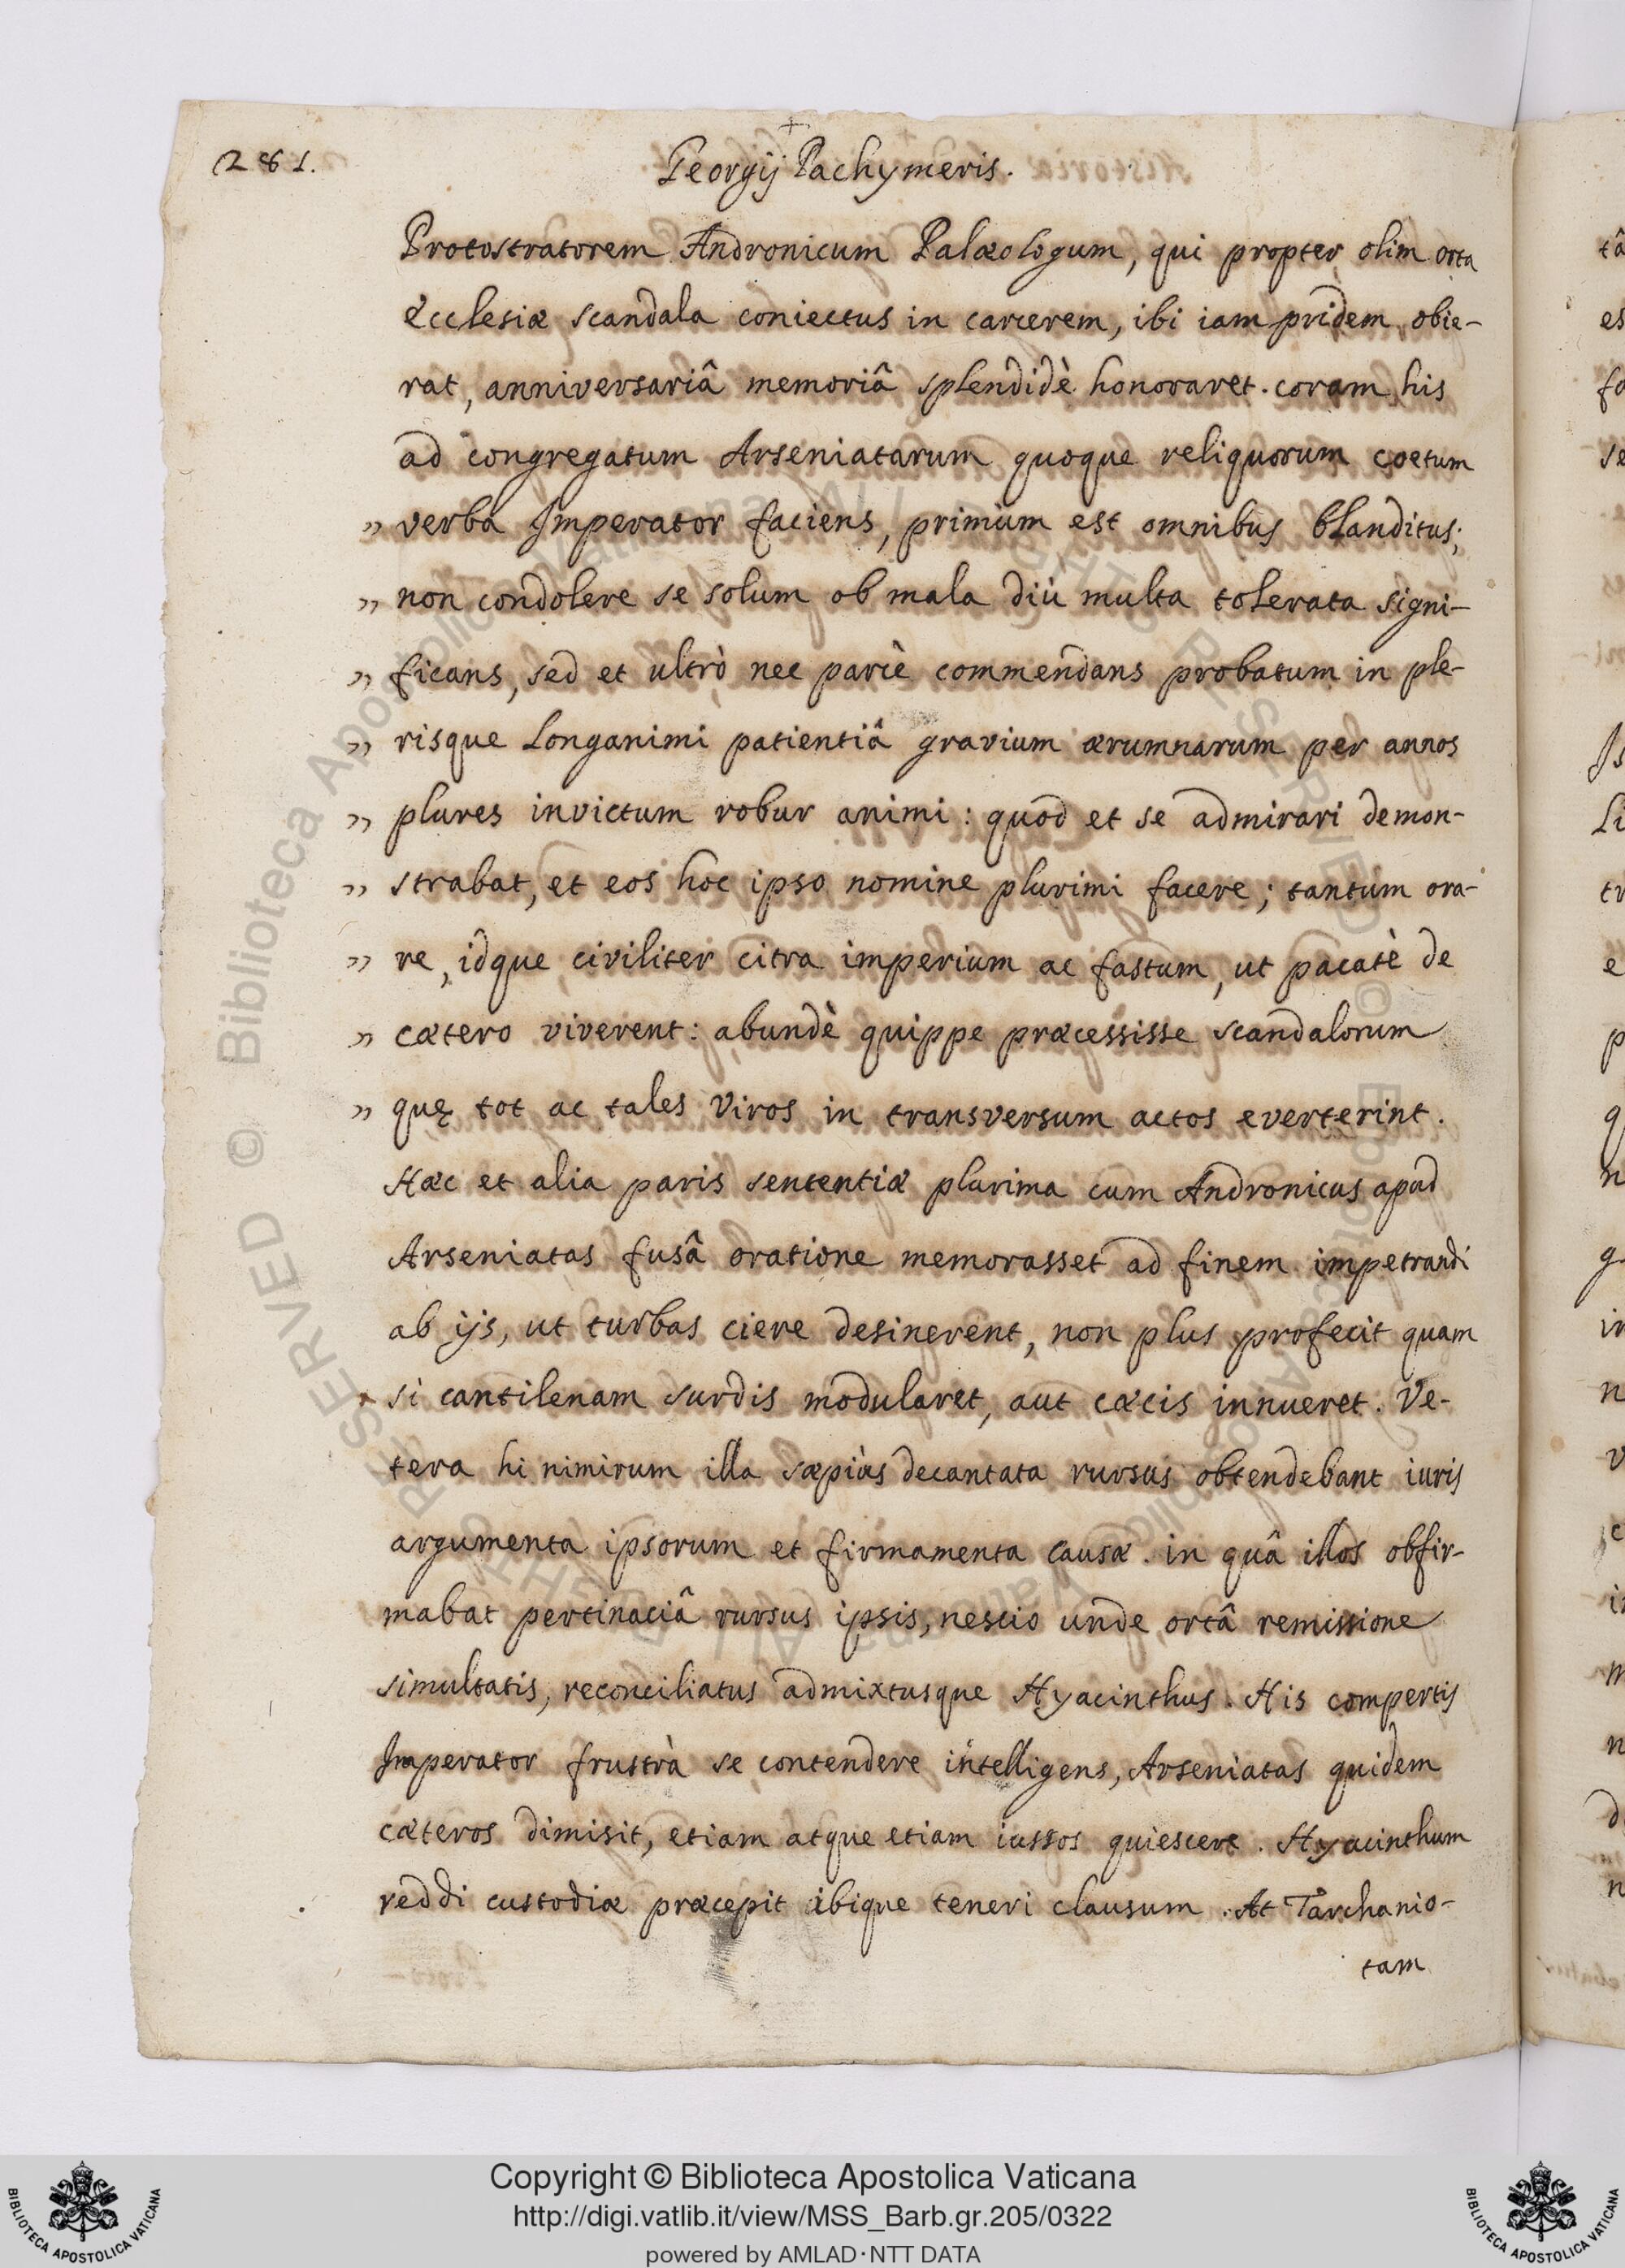 281.
Georgij Pachymeris.
Protostratorem Andronicum Palæologum, qui propter olim orta
Ecclesiæ scandala coniectus in carcerem, ibi iam pridem obie-
rat, anniversariâ memoriâ splendidè honoraret. coram his
ad congregatum Arseniatarum quoque reliquorum coetum
„ verba Imperator faciens, primùm est omnibus blanditus;
„ non condolere se solum ob mala diù multa tolerata signi-
„ ficans, sed et ultrò nec parcè commendans probatum in ple-
„ risque longanimi patientiâ gravium ærumnarum per annos
„ plures invictum robur animi: quod et se admirari demon-
„ strabat, et eos hoc ipso nomine plurimi facere; tantùm ora-
„ re, idque civiliter citra imperium ac fastum, ut pacatè de
„ cætero viverent: abundè quippe præcessisse scandalorum
„ quę tot ac tales viros in transversum actos everterint.
Hæc et alia paris sententiæ plurima cum Andronicus apud
Arseniatas fusâ oratione memorasset ad finem impetrandi
ab ijs, ut turbas ciere desinerent, non plus profecit quam
si cantilenam surdis modularet, aut cæcis innueret. Ve-
tera hi nimirum illa sæpiùs decantata rursus obtendebant iuris
argumenta ipsorum et firmamenta causæ. in quâ illos obfir-
mabat pertinaciâ rursus ipsis, nescio unde ortâ remissione
simultatis, reconciliatus admixtusque Hyacinthus. His compertis
Imperator frustrà se contendere intelligens, Arseniatas quidem
cæteros dimisit, etiam atque etiam iussos quiescere. Hyacinthum
reddi custodiæ præcepit ibique teneri clausum. At Tarchanio-
tam
Copyright © Biblioteca Apostolica Vaticana
http://digi.vatlib.it/view/MSS_Barb.gr.205/0322
powered by AMLAD·NTT DATA
BIBLIOTECA APOSTOLICA VATICANA
BIBLIOTECA APOSTOLICA VATICANA